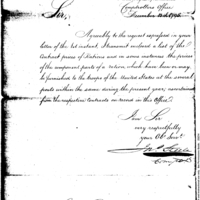 Comptrollers Office
December 10th 1798
Sir,
Agreeably to the request expressed in your
letter of the 1st instant, I transmit enclosed a list of the
Contract prices of Rations and in some instances the prices
of the component parts of a ration, which have been or may
be furnished to the troops of the United States at the several
posts within the same during the present year, ascertained
from the respective Contracts on record in this Office.
I am Sir
very respectfully
your Ob. Servt
Jno. Steele